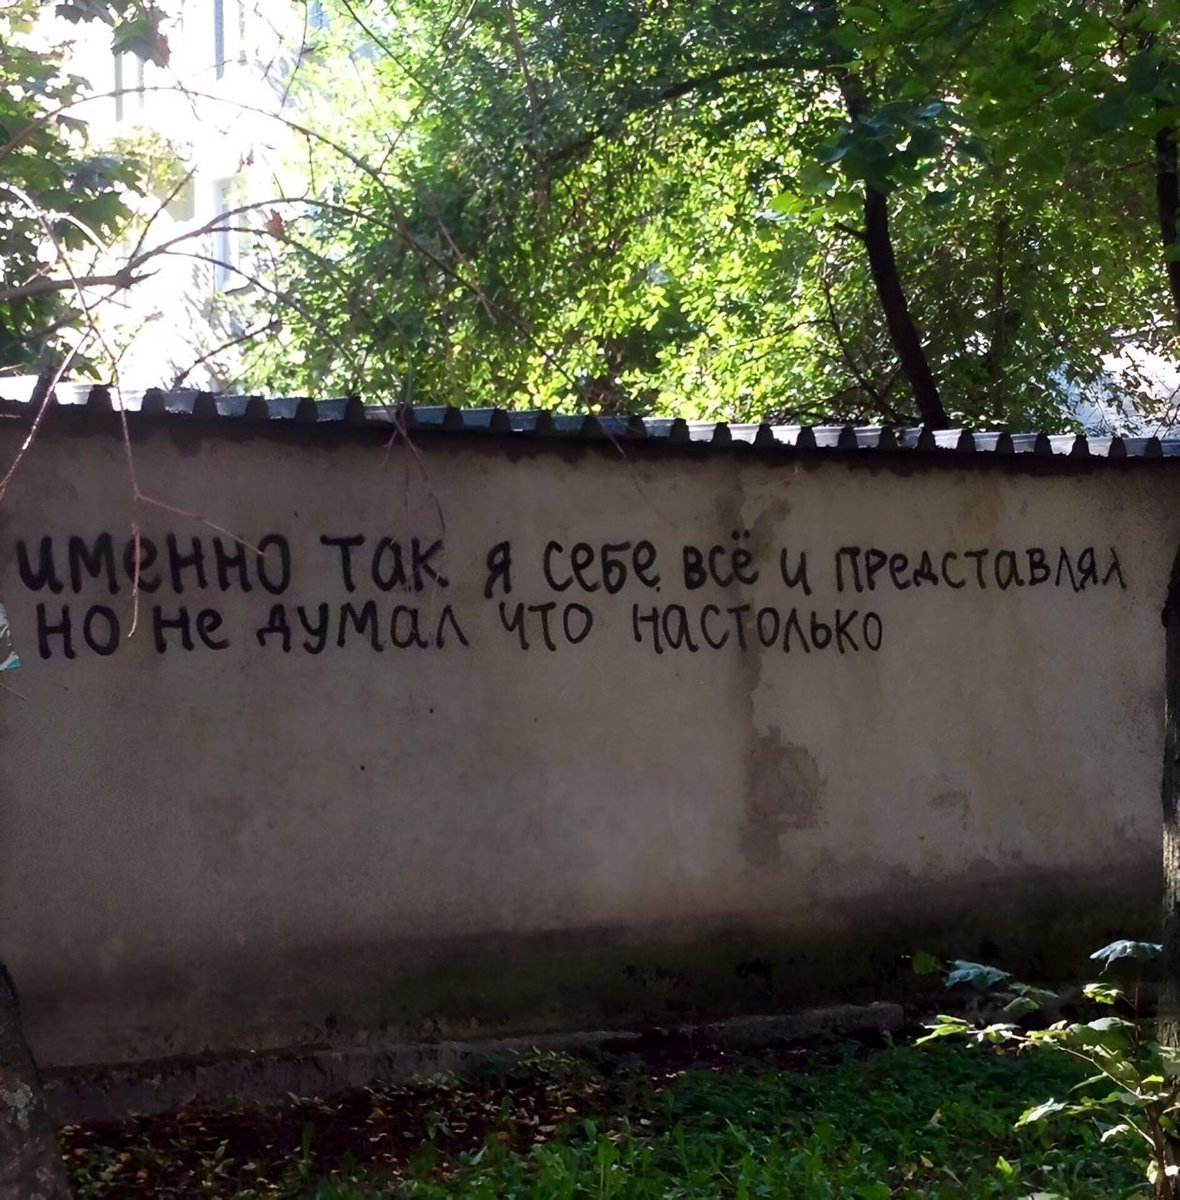 именно так я себе всё и представлял
но не думал что настолько